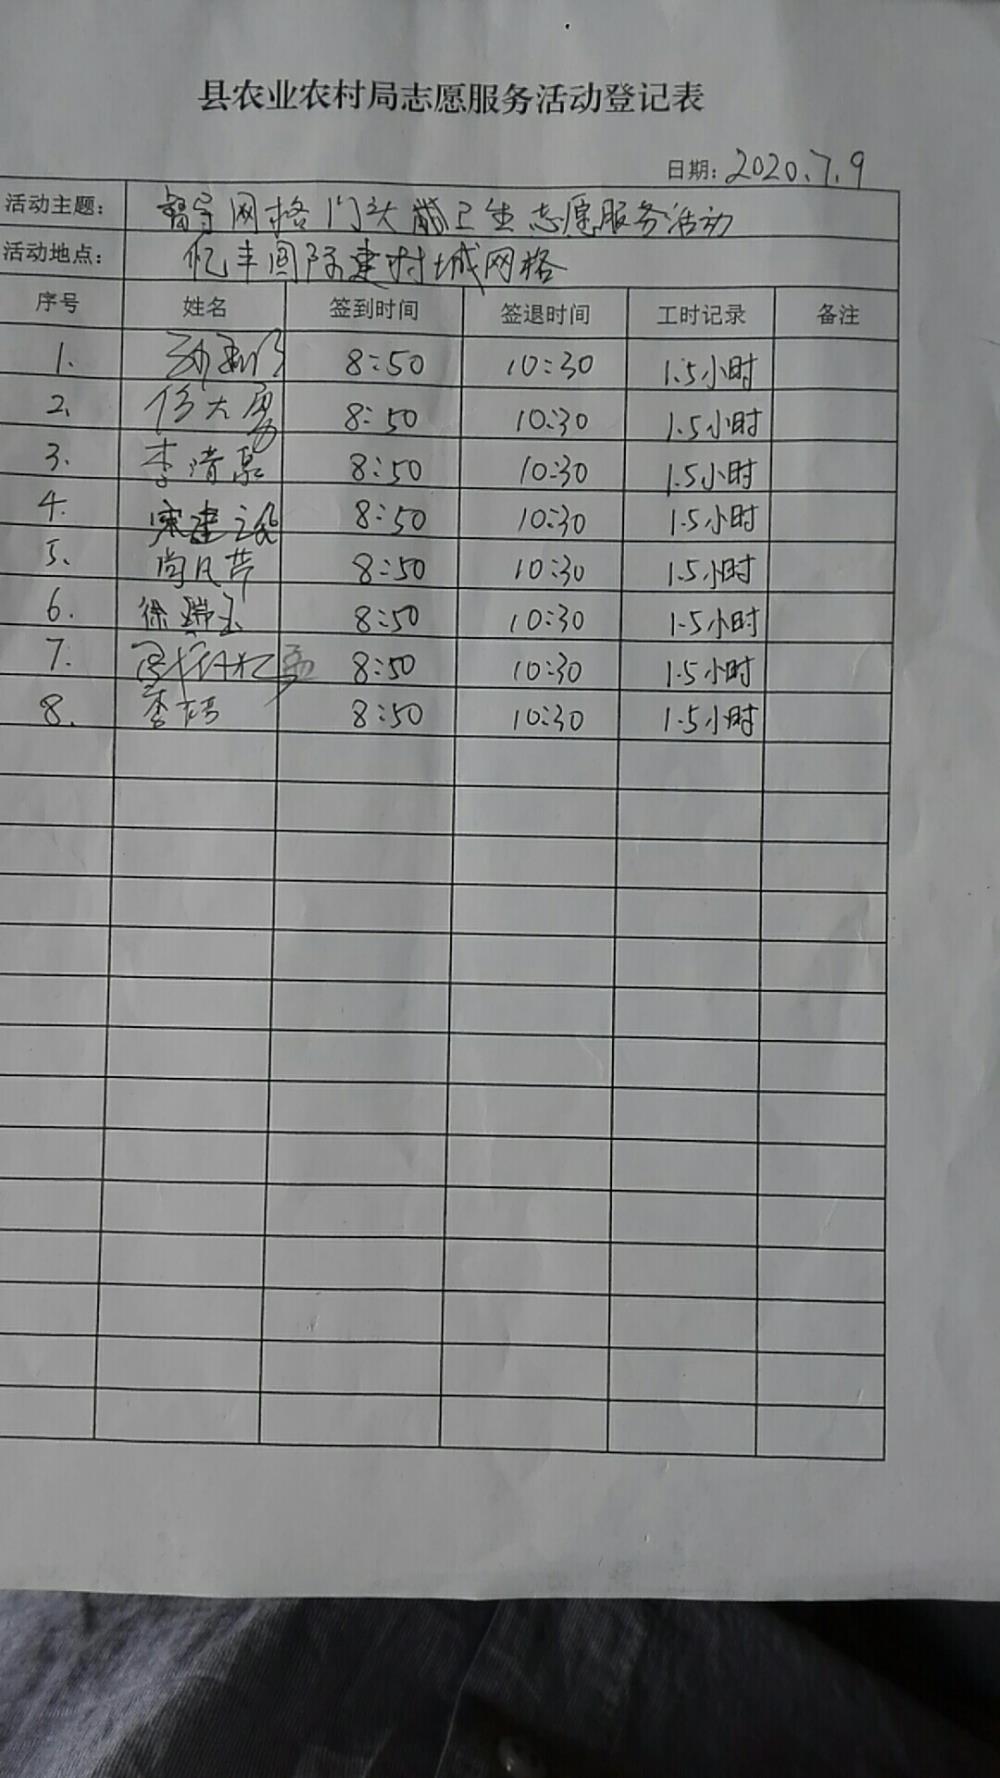 县农业农村局志愿服务活动登记表
日期：2020.7.9
活动主题： 督导网格门头 卫生志愿服务活动
活动地点： 亿丰国际建材城网格
序号 姓名 签到时间 签退时间 工时记录 备注
1. 8:50 10:30 1.5小时
2. 任大勇 8:50 10:30 1.5小时
3. 李清泉 8:50 10:30 1.5小时
4. 宋建 8:50 10:30 1.5小时
5. 尚凡芹 8:50 10:30 1.5小时
6. 徐瑞玉 8:50 10:30 1.5小时
7. 8:50 10:30 1.5小时
8. 李楠 8:50 10:30 1.5小时